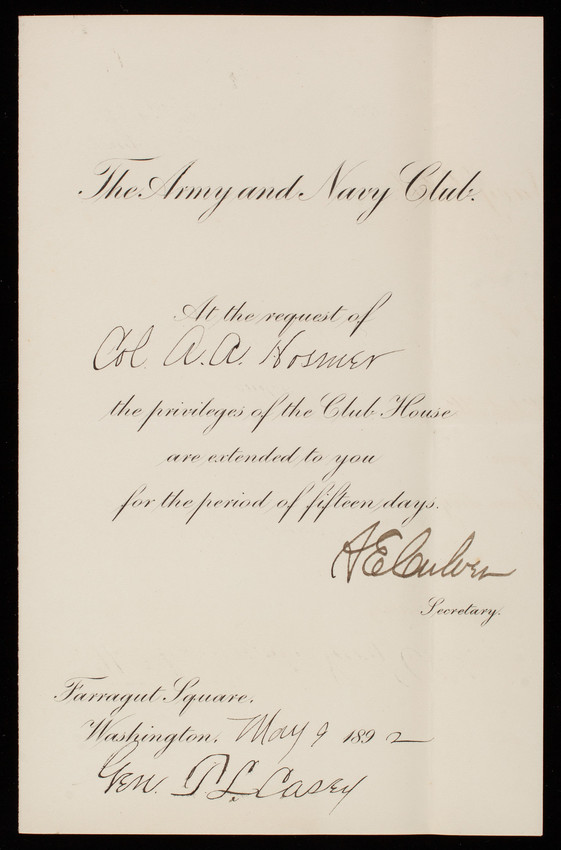 The Army and Navy Club.
At the request of
Col. A. A. Hosmer
the privileges of the Club House
are extended to you
for the period of fifteen days.
A E Culver
Secretary.
Farragut Square.
Washington. May 9 1892
Gen. T. L. Casey